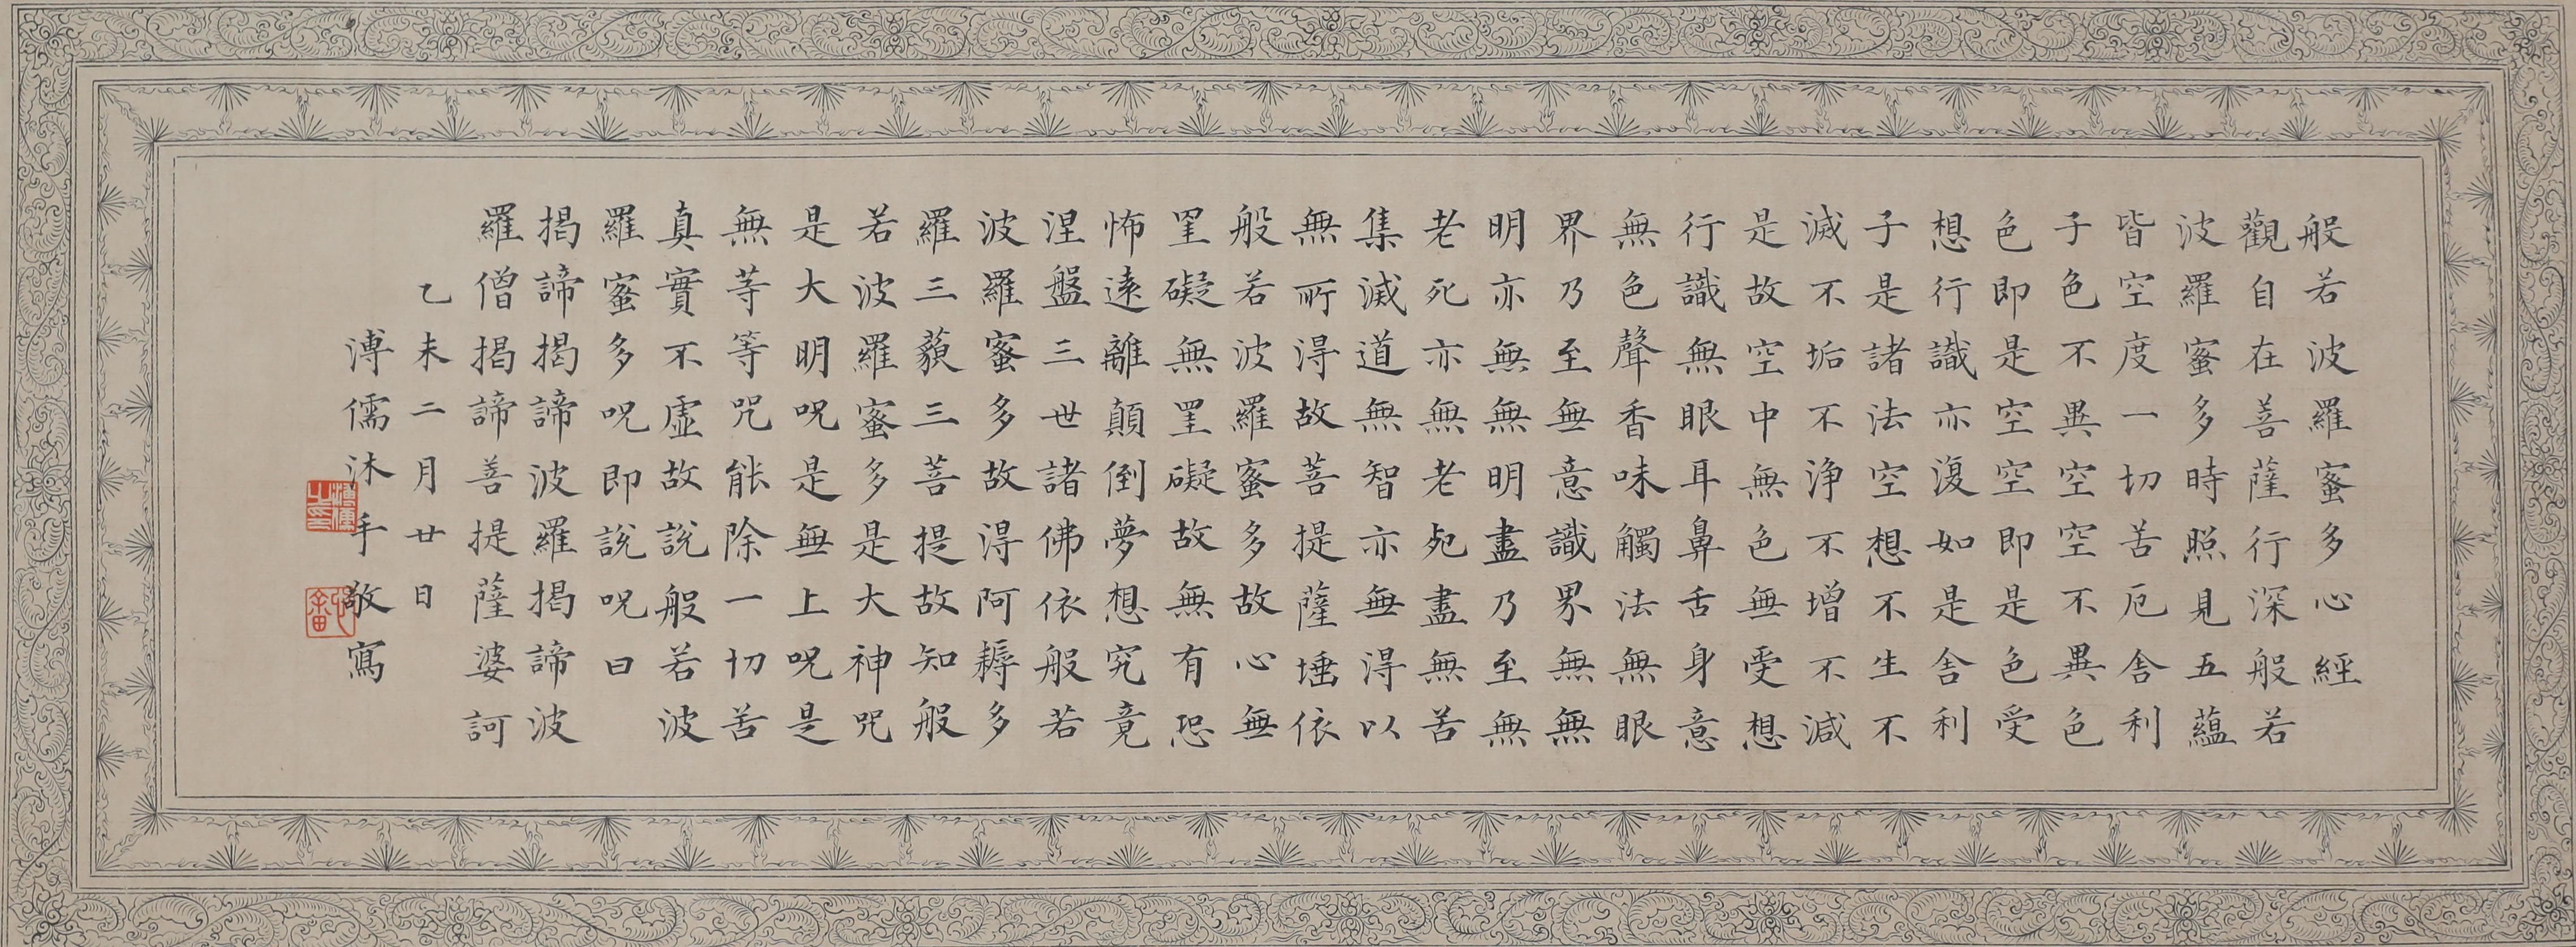 般若波羅蜜多心經
觀自在菩薩行深般若
波羅蜜多時照見五蘊
皆空度一切苦厄舍利
子色不異空空不異色
色即是空空即是色受
想行識亦復如是舍利
子是諸法空想不生不
滅不垢不淨不增不減
是故空中無色無受想
行識無眼耳鼻舌身意
無色聲香味觸法無眼
界乃至無意識界無無
明亦無無明盡乃至無
老死亦無老死盡無苦
集滅道無智亦無得以
無所得故菩提薩埵依
般若波羅蜜多故心無
罣礙無罣礙故無有恐
怖遠離顛倒夢想究竟
涅盤三世諸佛依般若
波羅蜜多故得阿耨多
羅三藐三菩提故知般
若波羅蜜多是大神咒
是大明呪是無上呪是
無等等咒能除一切苦
真實不虛故說般若波
羅蜜多呪即說呪曰
揭諦揭諦波羅揭諦波
羅僧揭諦善提薩婆訶
乙未二月廿日
溥儒沐手敬寫
溥儒之印